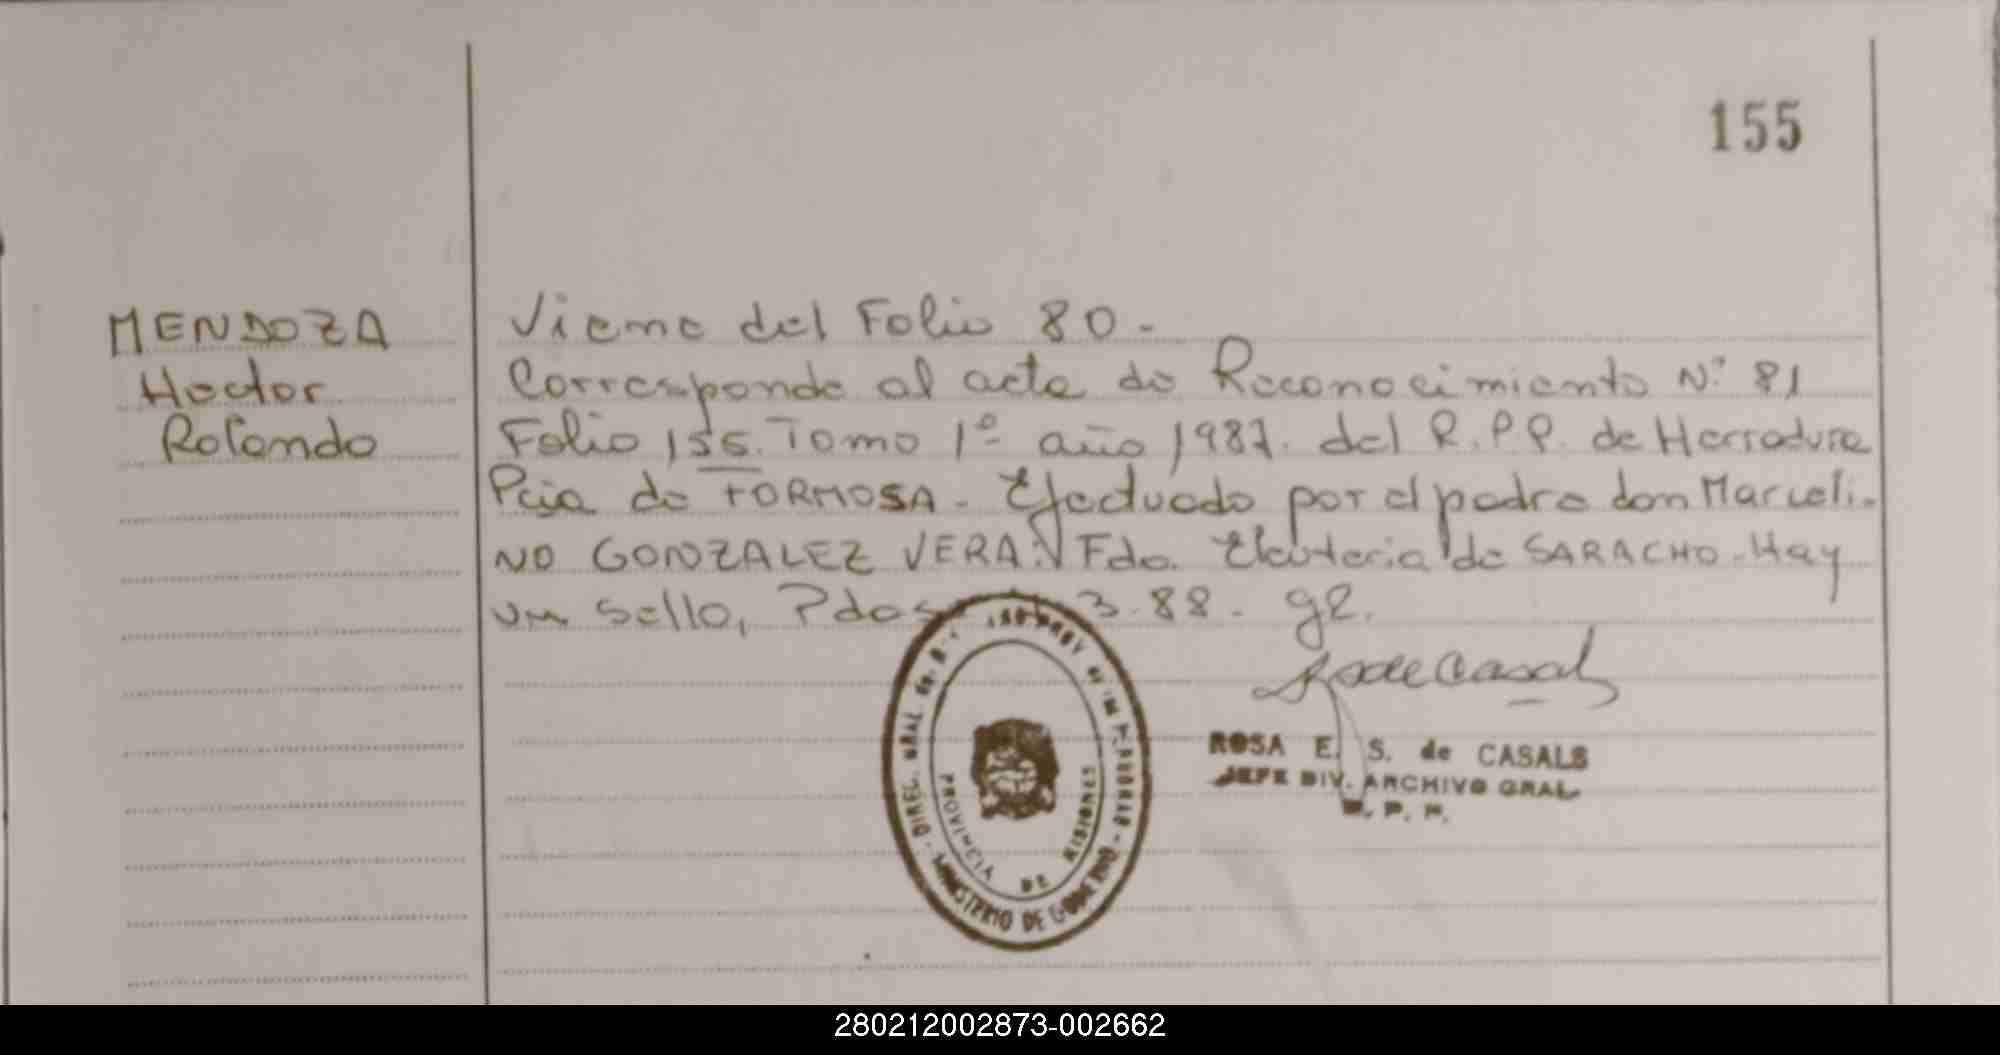 155
MENDOZA
Hector
Rolando
Viene del Folio 80 -
Corresponde al acta de Reconocimiento N° 81
Folio 155. Tomo 1° año 1987. del R.P.P. de Herradura
Pcia de FORMOSA - Efectuado por el padre don Marceli-
NO GONZALEZ VERA. Fdo. Eleuteria de SARACHO - Hay
un sello, Pdas 3.88 -
PROVINCIA DE MISIONES
MINISTERIO DE GOBIERNO
ROSA E. S. de CASALS
JEFE DIV. ARCHIVO GRAL.
280212002873-002662